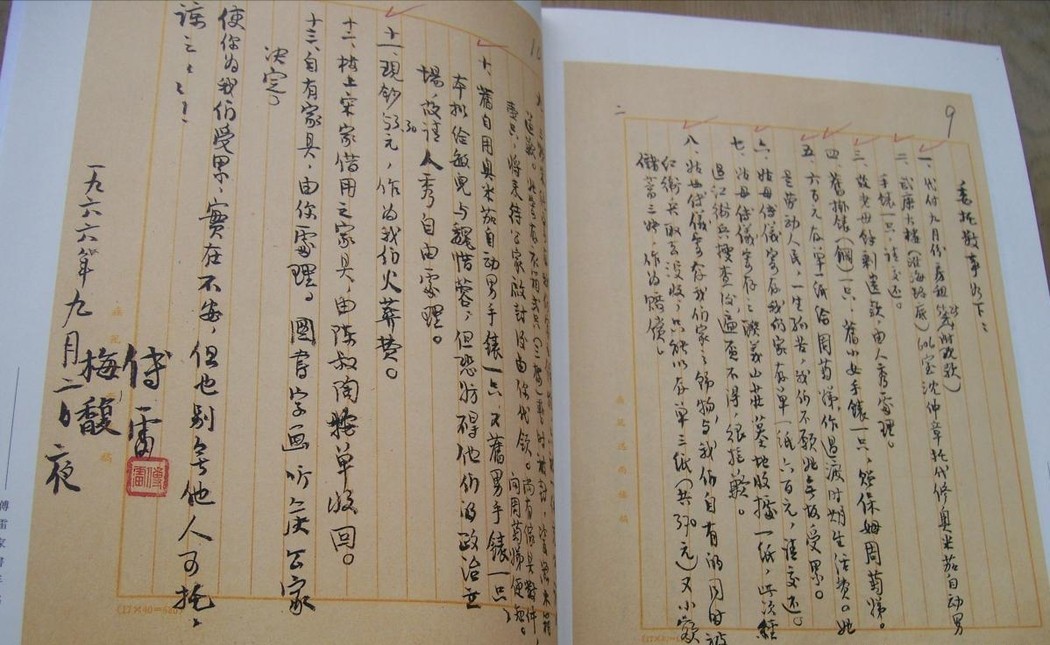 9
二
委托数事如下:
一、代付九月份房租 元(附现款)
二、武康大楼(淮海路底) 室沈仲章托代修奥米茄自动男
手錶一只,请交还。
三、故老母餘剩遗款,由人秀處理。
四、舊掛錶(鋼)一只,舊小女手錶一只,贈保姆周菊娣。
五、六百元存单一纸给周菊娣,作過渡时期生活费。她
是劳动人民,一生孤苦,我们不願她无故受累。
六、姑母傅儀寄存我们家存单一纸六百元,请交还。
七、姑母傅儀寄存之联義山莊墓地收據一纸,此次經
過红衛兵搜查後遍覓不得,很抱歉。
八、姑母傅儀寄存我们家之飾物,与我们自有的同时被
红衛兵取去没收,只能以存单三纸(共370元)又小额
儲蓄三张,作为赔償。
10
十、舊自用奥米茄自动男手錶一只,又舊男手錶一只,
本拟给敏兒与魏惜蓉,但恐妨碍他们的政治立
場,故请人秀自由處理。
十一、现钞53.30元,作为我们火葬费。
十二、楼上宋家借用之家具,由陈叔陶按单收回。
十三、自有家具,由你處理。图書字画听候公家
决定。
使你为我们受累,實在不安,但也别无他人可托,
諒之諒之!
傅雷
梅馥
一九六六年九月二日夜
傅雷